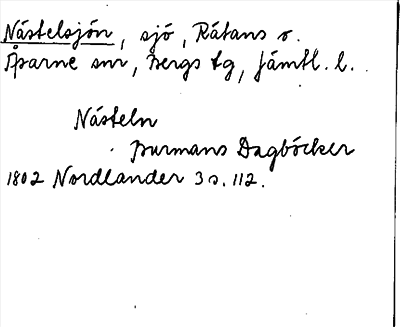 Nästelsjön, sjö, Rätans s.
Åsarne snr, Bergs tg, Jämtl. l.
Nästeln
Burmans Dagböcker
1802 Nordlander 3 s. 112.